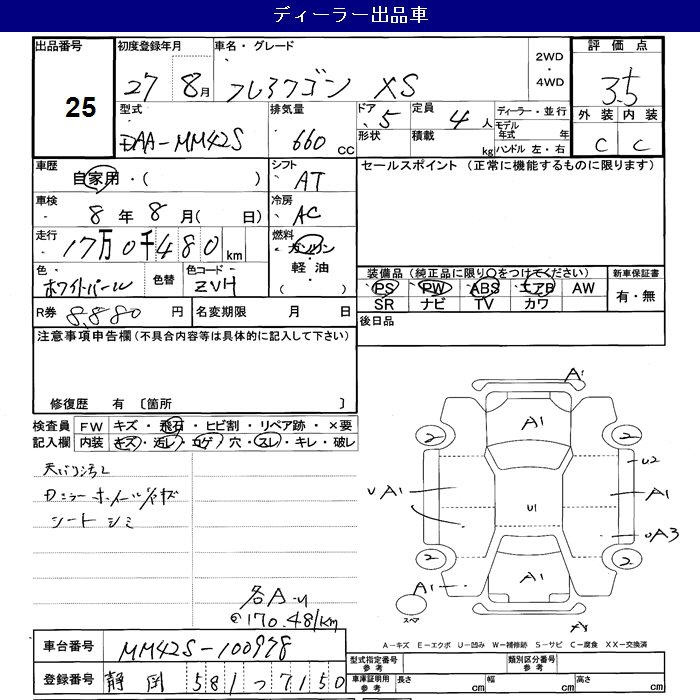 ディーラー出品車
出品番号 初度登録年月 車名・グレード 2WD ・ 4WD 評価点
25 27 8月 フレアワゴン XS 3.5
型式 排気量 ドア 定員 ディーラー・並行 外装 内装
DAA-MM42S 660 cc 5 4人 モデル年式 年
形状 積載 kg ハンドル 左・右 C C
車歴 シフト セールスポイント (正常に機能するものに限ります)
自家用・( ) AT
車検 冷房
8年 8月( 日) AC
走行 燃料
17万0千480km ガソリン・軽油・( )
色 色替 色コード 装備品(純正品に限り○をつけてください) 新車保証書
ホワイトパール ZVH PS PW ABS エアB AW 有・無
R券 8.880 円 名変期限 月 日 SR ナビ TV カワ
注意事項申告欄(不具合内容等は具体的に記入して下さい) 後日品
修復歴 有 〔箇所 〕
検査員 FW キズ・飛石・ヒビ割・リペア跡・×要
記入欄 内装 キズ・汚レ・コゲ・穴・スレ・キレ・破レ
天バリ汚レ
ホイールキズ
シート シミ
各A-U
@170.481km
A1
A1
2 2
U2
UA1 U1 A1
UA3
2 2
A1 A1
スペア
A-キズ E-エクボ U-凹み W-補修跡 S-サビ C-腐食 XX-交換済
車台番号 MM42S-100978
型式指定番号 参考 類別区分番号 参考
登録番号 静岡 581 つ 7150
車庫証明用 参考 長さ cm 幅 cm 高さ cm